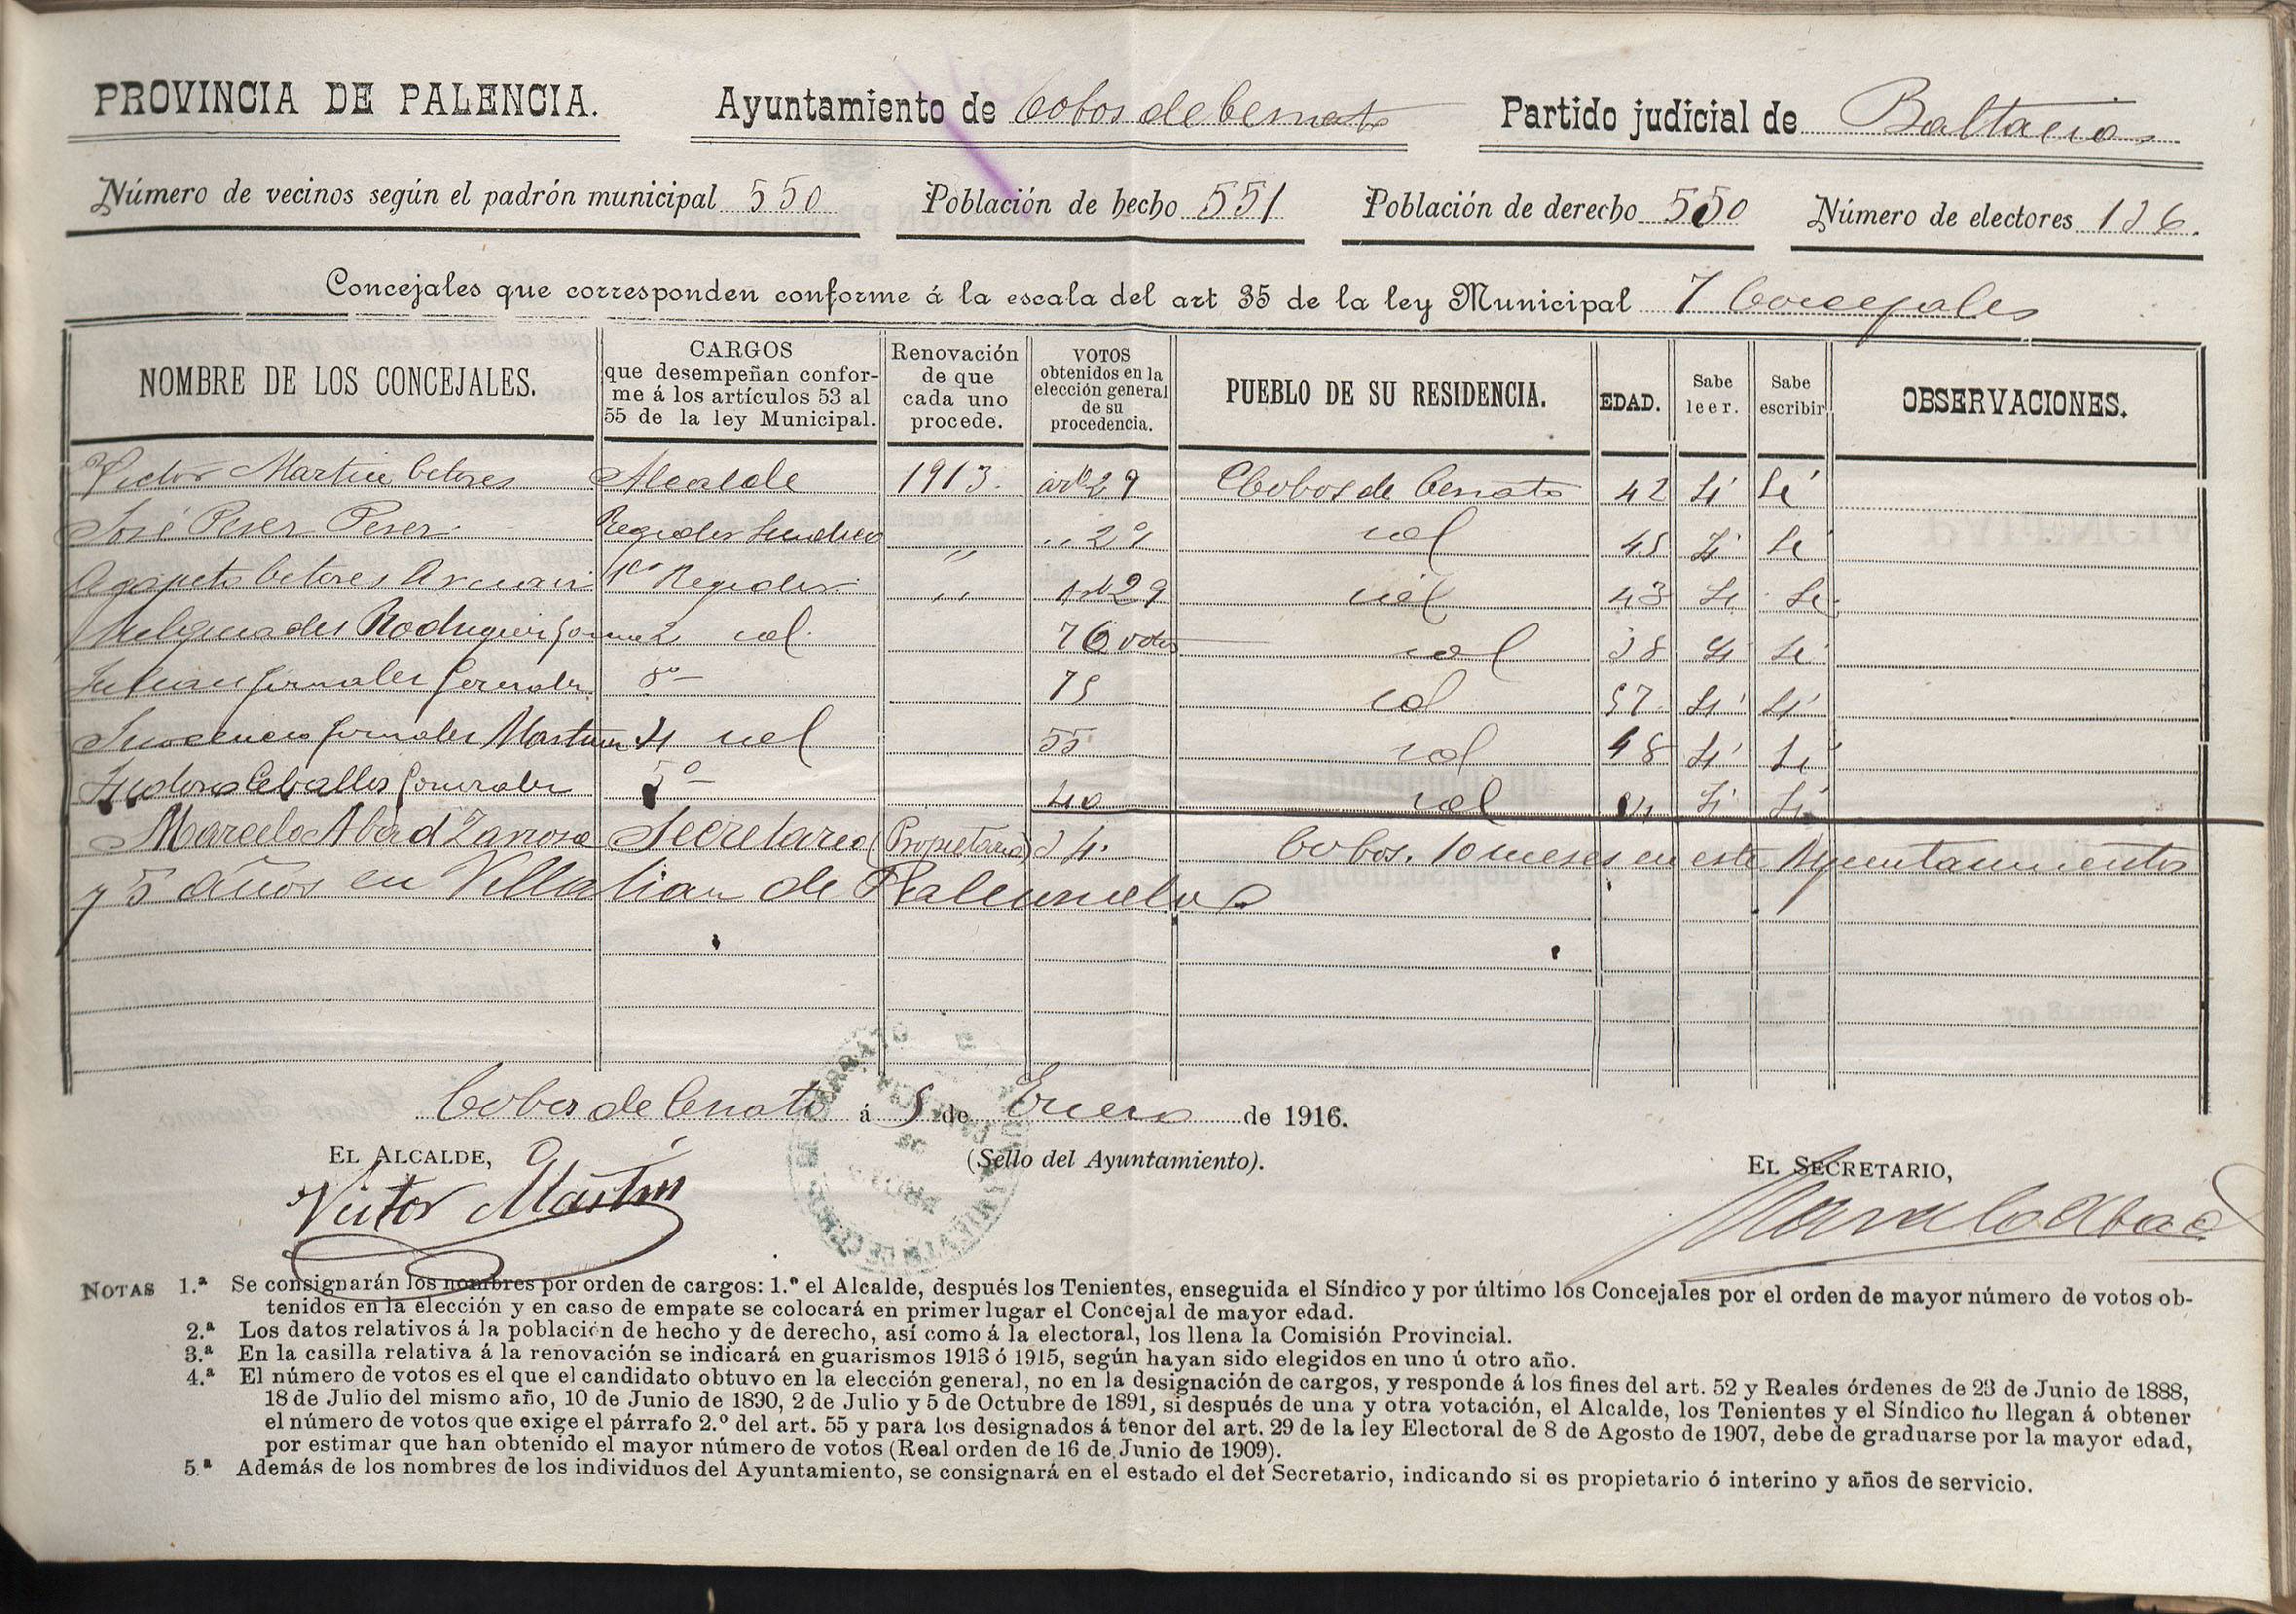 PROVINCIA DE PALENCIA. Ayuntamiento de Cobos de Cerrato Partido judicial de Baltanás
Número de vecinos según el padrón municipal 550 Población de hecho 551 Población de derecho 550 Número de electores 126.
Concejales que corresponden conforme á la escala del art 35 de la ley Municipal 7 Concejales
NOMBRE DE LOS CONCEJALES. CARGOS que desempeñan confor- me á los artículos 53 al 55 de la ley Municipal. Renovación de que cada uno procede. VOTOS obtenidos en la elección general de su procedencia. PUEBLO DE SU RESIDENCIA. EDAD. Sabe leer. Sabe escribir OBSERVACIONES.
Victor Martin Cetores Alcalde 1913. artº 29 Cobos de Cerrato 42 Sí Sí
José Perez Perez Regidor Sindico " " 29 id 45 Sí Sí
Agapito Cetores 1er Regidor " art 29 id 43 Si Si
Melquiades Rodriguez 2 id. 76 votos id 38 Si Si
Julian Gonzalez Gonzalez 3º 75 id 57 Sí Sí
Inocencio Gonzalez Martin 4 id 55 id 48 Sí Si
Isidoro Ceballos Gonzalez 5º 40 id Si Si
Marcelo Abad Secretario (Propietario) 34. Cobos. 10 meses en este Ayuntamiento
y 5 años en de
Cobos de Cerrato á 5 de Enero de 1916.
EL ALCALDE, (Sello del Ayuntamiento). EL SECRETARIO,
Victor Martin Marcelo Abad
NOTAS 1.ª Se consignarán los nombres por orden de cargos: 1.º el Alcalde, después los Tenientes, enseguida el Síndico y por último los Concejales por el orden de mayor número de votos ob-
tenidos en la elección y en caso de empate se colocará en primer lugar el Concejal de mayor edad.
2.ª Los datos relativos á la población de hecho y de derecho, así como á la electoral, los llena la Comisión Provincial.
3.ª En la casilla relativa á la renovación se indicará en guarismos 1913 ó 1915, según hayan sido elegidos en uno ú otro año.
4.ª El número de votos es el que el candidato obtuvo en la elección general, no en la designación de cargos, y responde á los fines del art. 52 y Reales órdenes de 23 de Junio de 1888,
18 de Julio del mismo año, 10 de Junio de 1890, 2 de Julio y 5 de Octubre de 1891, si después de una y otra votación, el Alcalde, los Tenientes y el Síndico no llegan á obtener
el número de votos que exige el párrafo 2.º del art. 55 y para los designados á tenor del art. 29 de la ley Electoral de 8 de Agosto de 1907, debe de graduarse por la mayor edad,
por estimar que han obtenido el mayor número de votos (Real orden de 16 de Junio de 1909).
5.ª Además de los nombres de los individuos del Ayuntamiento, se consignará en el estado el del Secretario, indicando si es propietario ó interino y años de servicio.